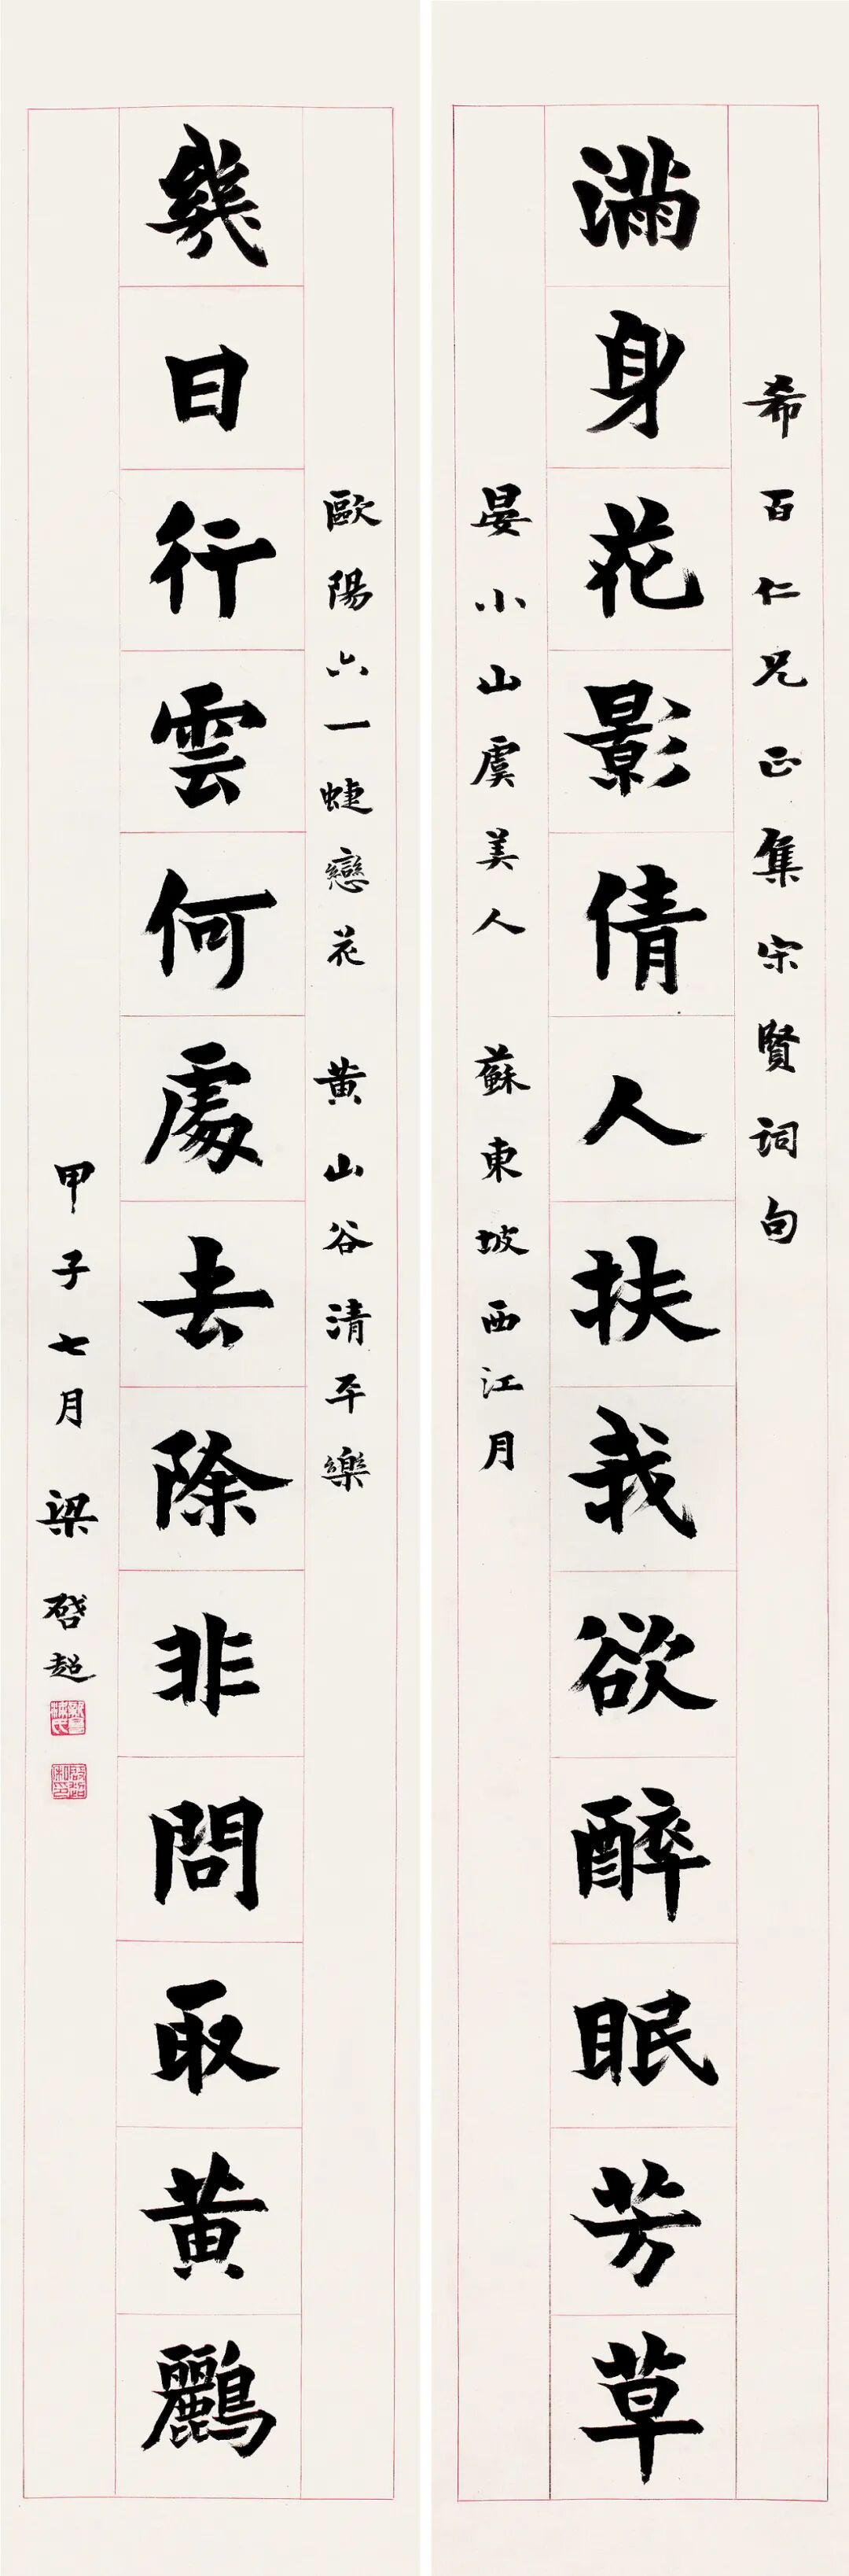 希百仁兄正集宋賢詞句
滿身花影倩人扶我欲醉眠芳草
晏小山虞美人 蘇東坡西江月
歐陽六一蜨戀花 黃山谷清平樂
幾日行雲何處去除非問取黃鸝
甲子七月 梁啓超